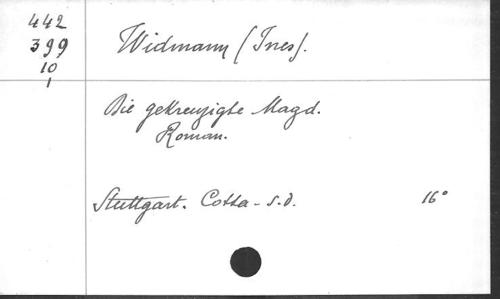 442
399
10
1
Widmann (Ines).
Die gekreuzigte Magd.
Roman.
Stuttgart. Cotta - s.d. 16°